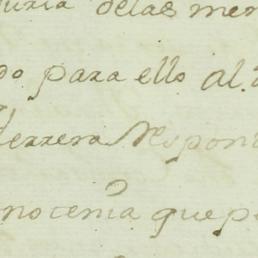 delas
do para ello al
Herrera respon
no tenia que p